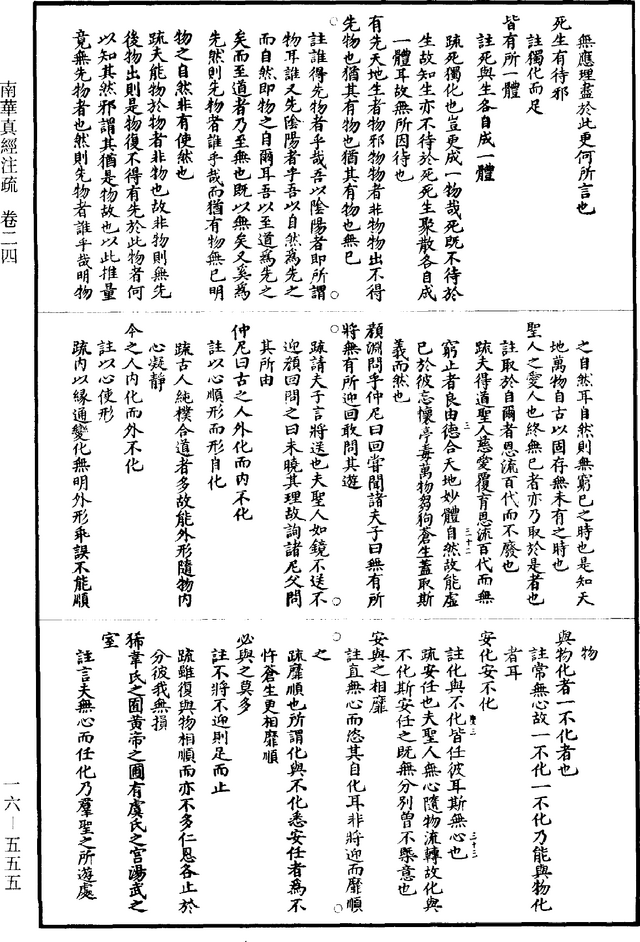 無應理盡於此更何所言也
死生有待邪
註獨化而足
皆有所一體
註死與生各自成一體
疏死獨化也豈更成一物哉死既不待於
生故知生亦不待於死死生聚散各自成
一體耳故無所因待也
有先天地生者物邪物物者非物物出不得
先物也猶其有物也猶其有物也無已
註誰得先物者乎哉吾以陰陽者即所謂
物耳誰又先陰陽者乎吾以自然為先之
而自然即物之自爾耳吾以至道為先之
矣而至道者乃至無也既以無矣又奚為
先然則先物者誰乎哉而猶有物無已明
物之自然非有使然也
疏夫能物於物者非物也故非物則無先
後物出則是物復不得有先於此物者何
以知其然邪謂其猶是物故也以此推量
竟無先物者也然則先物者誰乎哉明物
之自然耳自然則無窮已之時也是知天
地萬物自古以固存無未有之時也
聖人之愛人也終無已者亦乃取於是者也
註取於自爾者恩流百代而不廢也
疏夫得道聖人慈愛覆育恩流百代而無
窮止者良由德合天地妙體自然故能虛
己於彼忘懷亭毒萬物芻狗蒼生蓋取斯
義而然也
顏淵問乎仲尼曰回嘗聞諸夫子曰無有所
將無有所迎回敢問其遊
疏請夫子言將送也夫聖人如鏡不送不
迎顏回問之曰未曉其理故詢諸尼父問
其所由
仲尼曰古之人外化而內不化
註以心順形而形自化
疏古人純樸合道者多故能外形隨物內
心凝靜
今之人內化而外不化
註以心使形
疏內以緣通變化無明外形乖誤不能順
物
與物化者一不化者也
註常無心故一不化一不化乃能與物化
者耳
安化安不化
註化與不化皆任彼耳斯無心也
疏安任也夫聖人無心隨物流轉故化與
不化斯安任之既無分別曾不槩意也
安與之相靡
註直無心而恣其自化耳非將迎而靡順
之
疏靡順也所謂化與不化悉安任者為不
忤蒼生更相靡順
必與之莫多
註不將不迎則足而止
疏雖復與物相順而亦不多仁恩各止於
分彼我無損
狶韋氏之囿黃帝之圃有虞氏之宮湯武之
室
註言夫無心而任化乃羣聖之所遊處
南華真經注疏 卷二四
一六－五五五